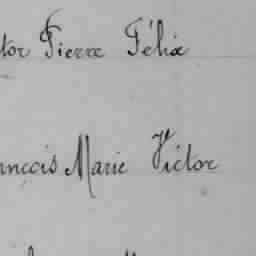 tor Pierre Félix
ancois Marie Victor